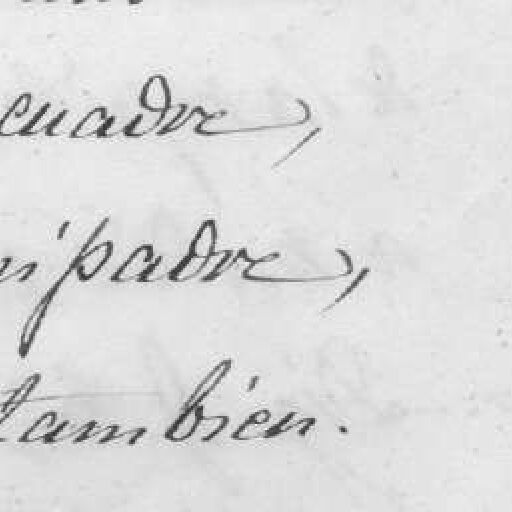 cuadre,
mi padre,
tambien.